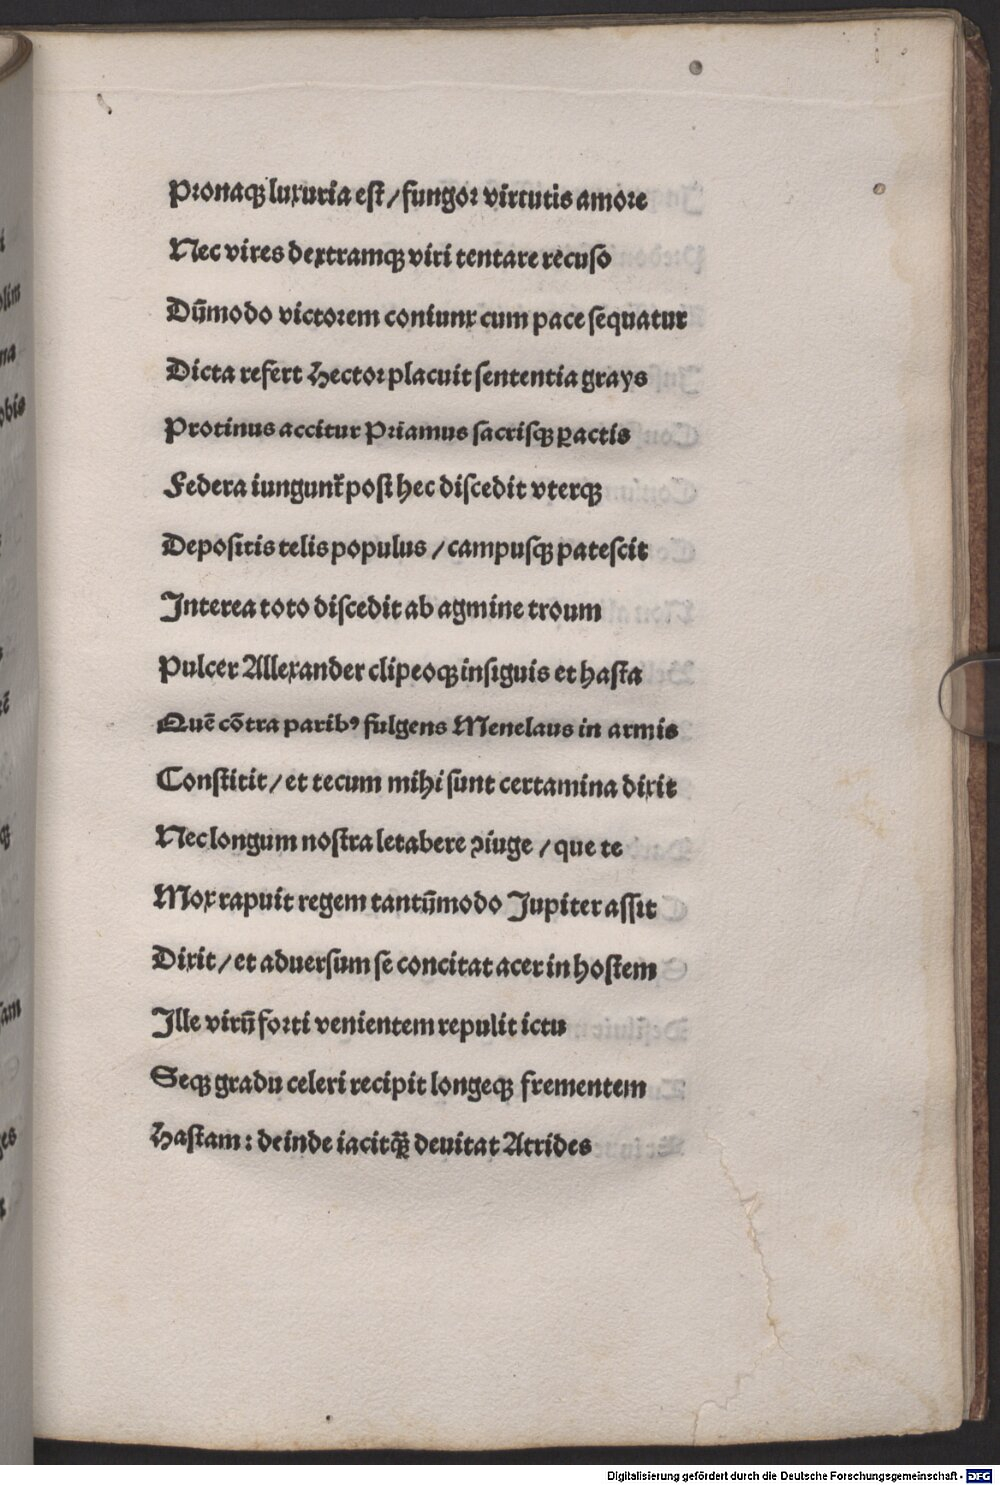 Pronaqꝫ luxuria est / fungor virtutis amore
Nec vires dextramqꝫ viri tentare recuso
Dū̄modo victorem coniunx cum pace sequatur
Dicta refert Hector placuit sententia grays
Protinus accitur Priamus sacrisqꝫ ꝑactis
Federa iungunt᷑ post hec discedit vterqꝫ
Depositis telis populus / campusqꝫ patescit
Interea toto discedit ab agmine troum
Pulcer Allexander clipeoqꝫ insiguis et hasta
Quē cōtra paribꝰ fulgens Menelaus in armis
Constitit / et tecum mihi sunt certamina dixit
Nec longum nostra letabere ꝯiuge / que te
Mox rapuit regem tantūmodo Jupiter assit
Dixit / et aduersum se concitat acer in hostem
Ille virū forti venientem repulit ictu
Seqꝫ gradu celeri recipit longeqꝫ frementem
Hastam : deinde iacit qꝫ̄ deuitat Atrides
olim
na
obis
sam
ges
Digitalisierung gefördert durch die Deutsche Forschungsgemeinschaft - DFG